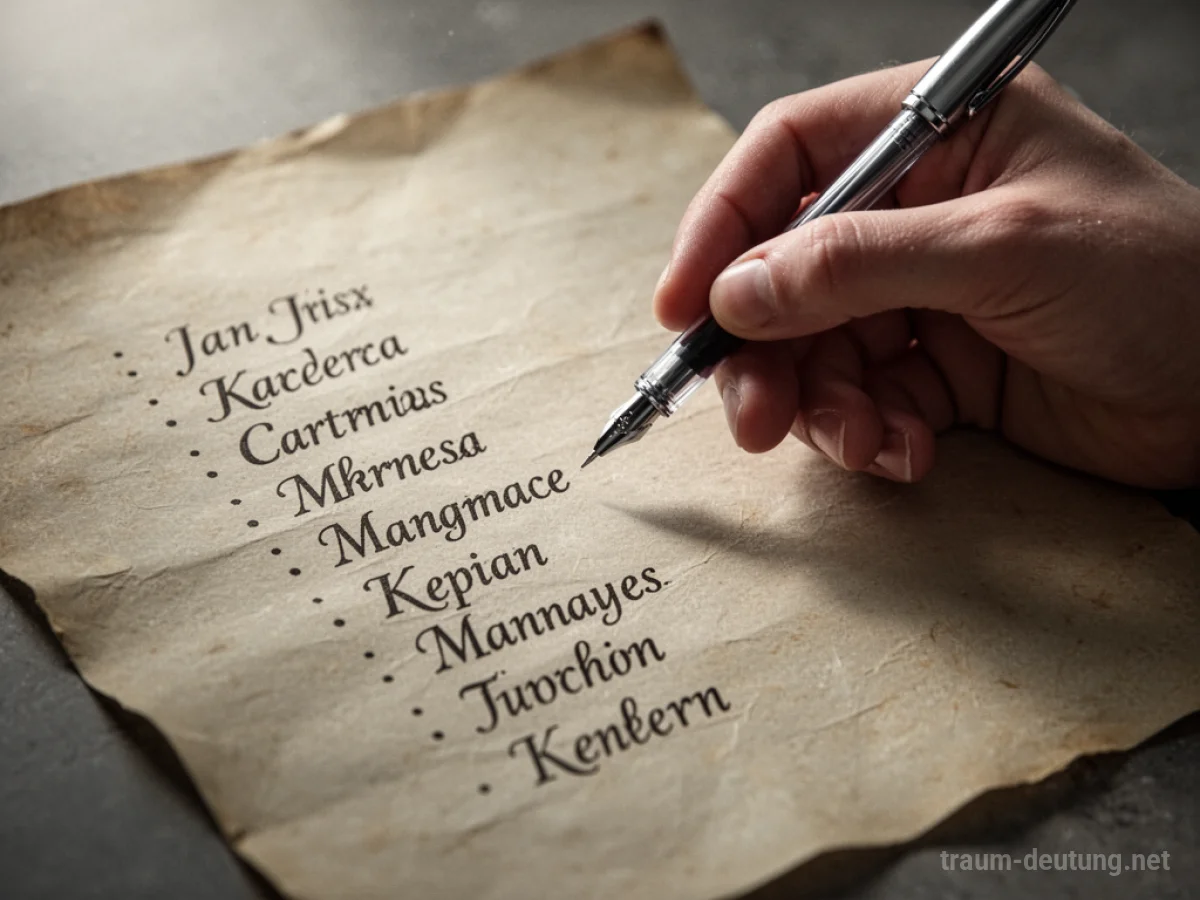 Jan Jrisx
Karderca
Cartrnius
Mkrnesa
Mangmace
Kepian
Mannayes.
Tuvrchion
Kenbern
traum-deutung.net